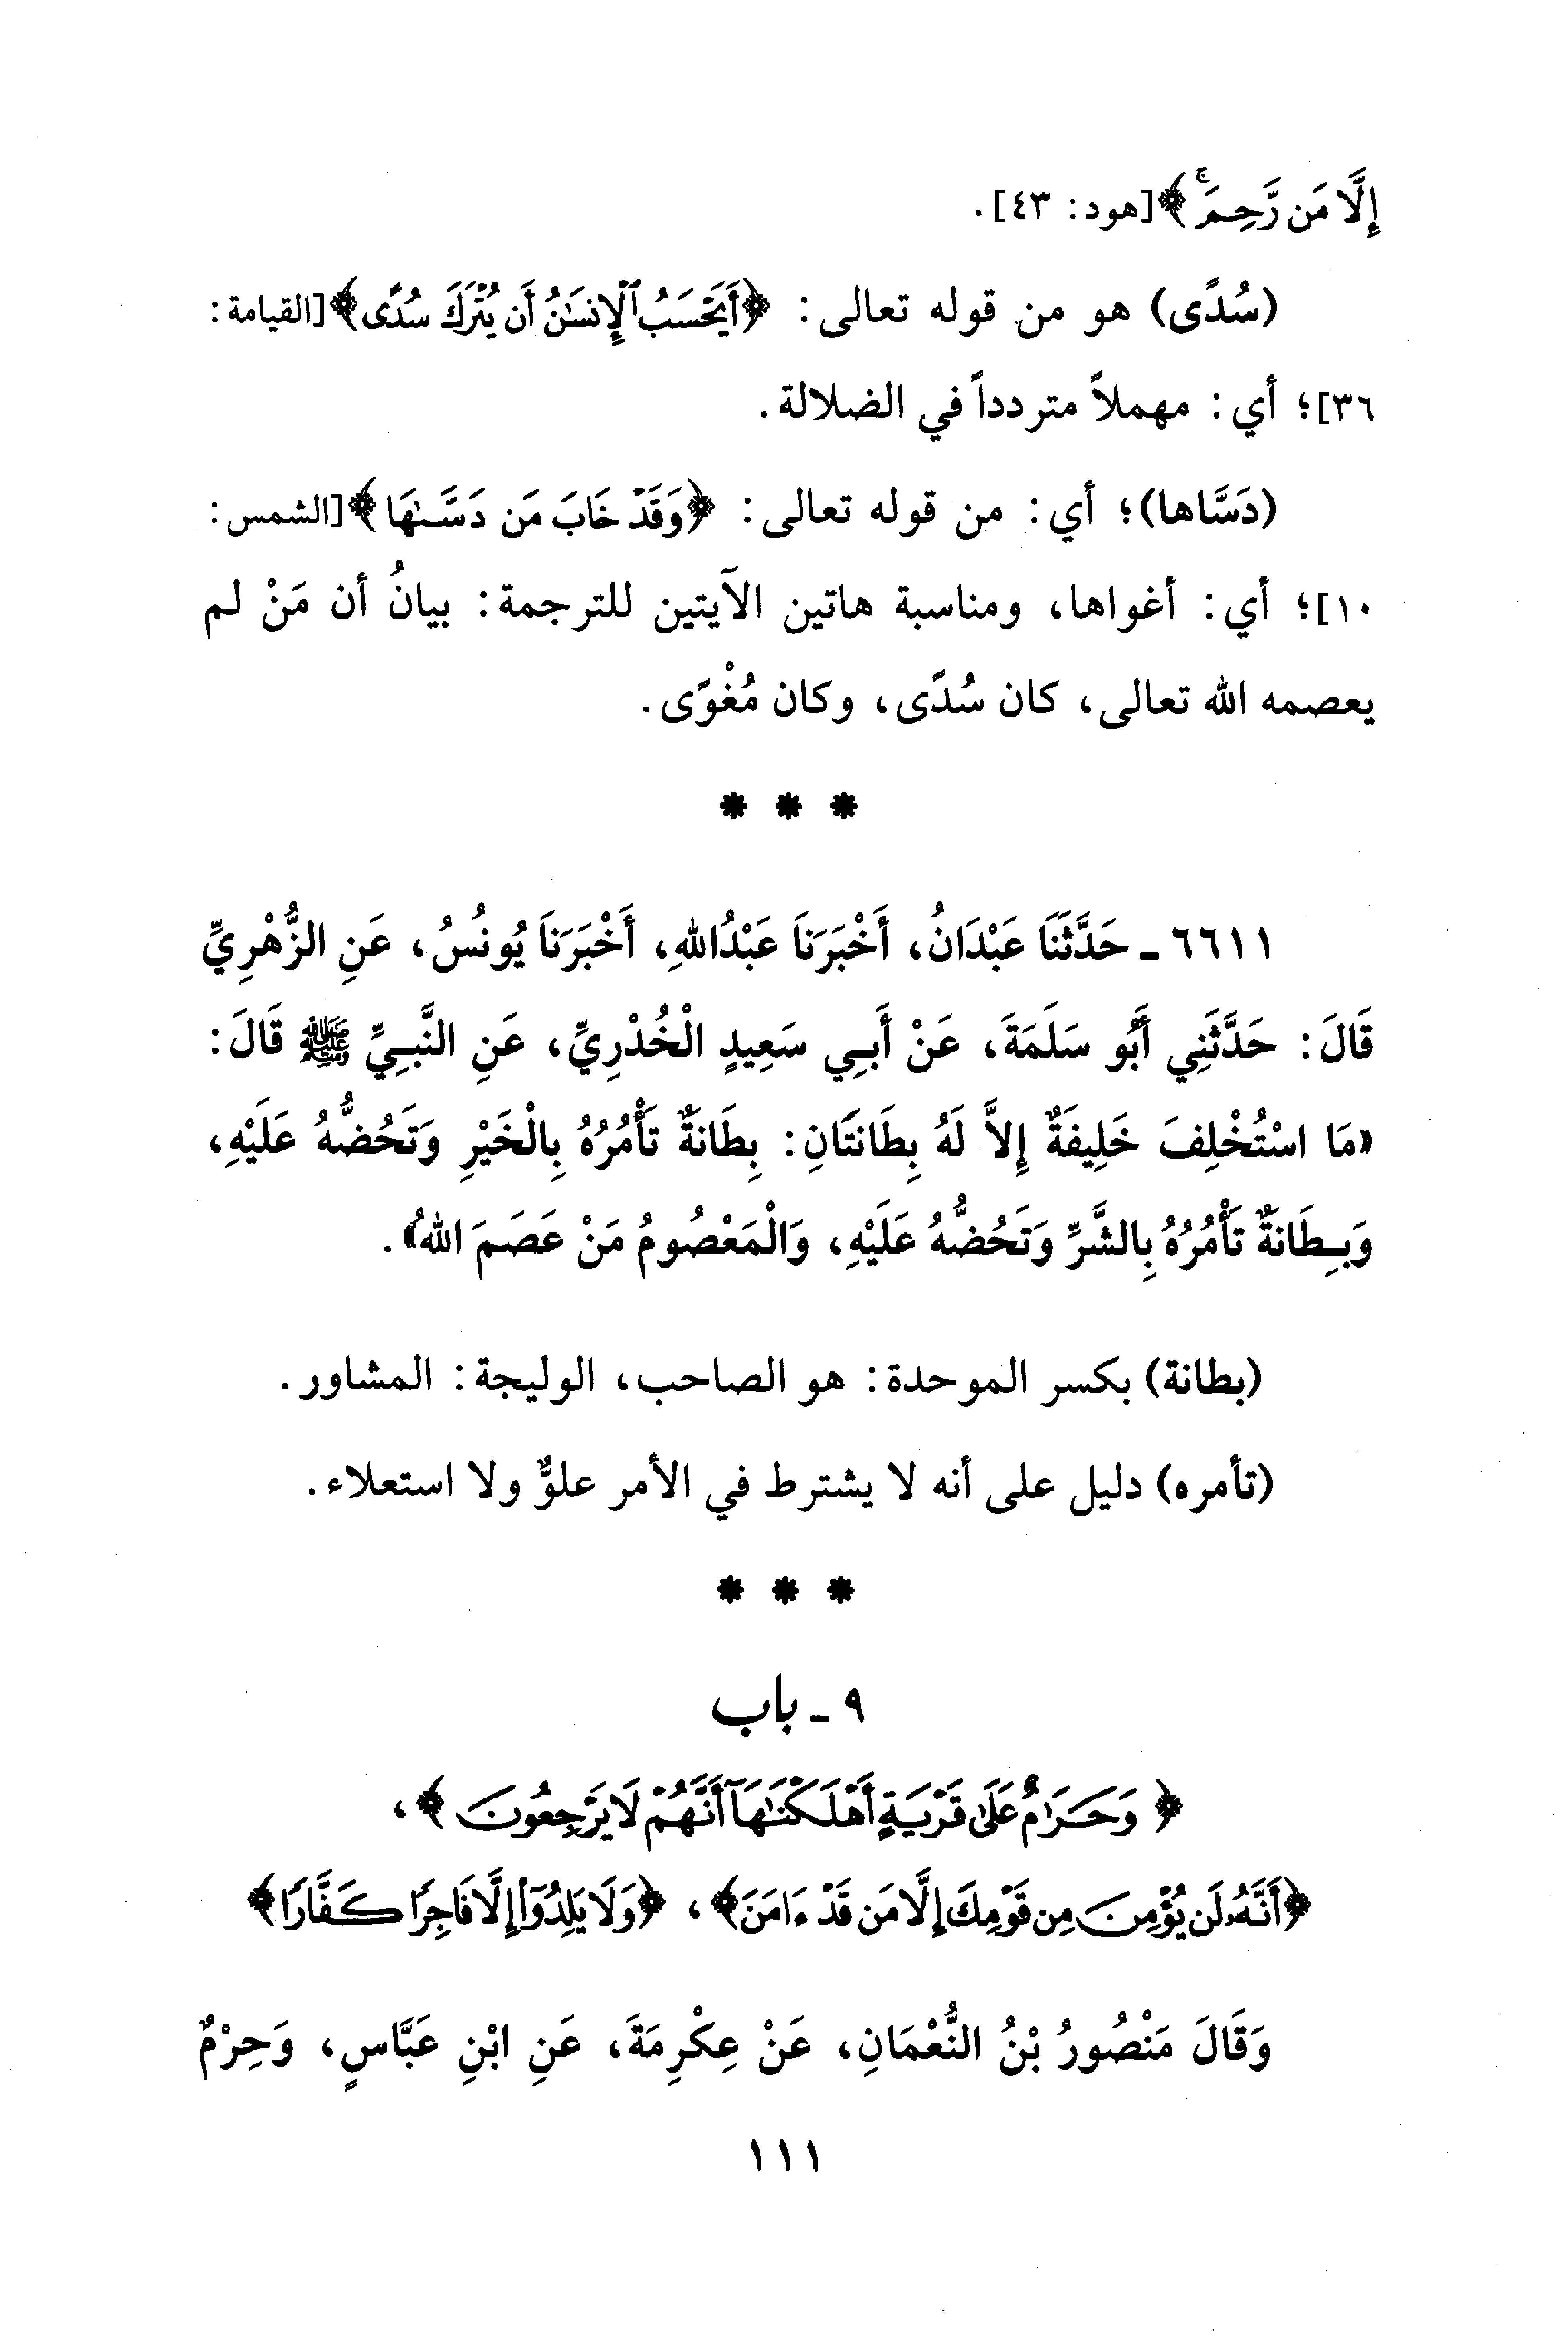 إِلَّا مَن رَّحِمَ ۚ﴾ [هود: ٤٣].
(سُدًى) هو من قوله تعالى: ﴿أَيَحْسَبُ ٱلْإِنسَٰنُ أَن يُتْرَكَ سُدًى﴾ [القيامة:
٣٦]؛ أي: مهملاً متردداً في الضلالة.
(دَسَّاها)؛ أي: من قوله تعالى: ﴿وَقَدْ خَابَ مَن دَسَّىٰهَا﴾ [الشمس:
١٠]؛ أي: أغواها، ومناسبة هاتين الآيتين للترجمة: بيانُ أن مَنْ لم
يعصمه الله تعالى، كان سُدًى، وكان مُغْوًى.
* * *
٦٦١١ - حَدَّثَنَا عَبْدَانُ، أَخْبَرَنَا عَبْدُاللهِ، أَخْبَرَنَا يُونُسُ، عَنِ الزُّهْرِيِّ
قَالَ: حَدَّثَنِي أَبُو سَلَمَةَ، عَنْ أَبِي سَعِيدٍ الْخُدْرِيِّ، عَنِ النَّبِيِّ ﷺ قَالَ:
«مَا اسْتُخْلِفَ خَلِيفَةٌ إِلاَّ لَهُ بِطَانَتَانِ: بِطَانَةٌ تَأْمُرُهُ بِالْخَيْرِ وَتَحُضُّهُ عَلَيْهِ،
وَبِطَانَةٌ تَأْمُرُهُ بِالشَّرِّ وَتَحُضُّهُ عَلَيْهِ، وَالْمَعْصُومُ مَنْ عَصَمَ اللهُ».
(بطانة) بكسر الموحدة: هو الصاحب، الوليجة: المشاور.
(تأمره) دليل على أنه لا يشترط في الأمر علوٌّ ولا استعلاء.
* * *
٩ - باب
﴿وَحَرَٰمٌ عَلَىٰ قَرْيَةٍ أَهْلَكْنَٰهَآ أَنَّهُمْ لَا يَرْجِعُونَ﴾،
﴿أَنَّهُۥ لَن يُؤْمِنَ مِن قَوْمِكَ إِلَّا مَن قَدْ ءَامَنَ﴾، ﴿وَلَا يَلِدُوٓا۟ إِلَّا فَاجِرًا كَفَّارًا﴾
وَقَالَ مَنْصُورُ بْنُ النُّعْمَانِ، عَنْ عِكْرِمَةَ، عَنِ ابْنِ عَبَّاسٍ، وَحِرْمٌ
١١١